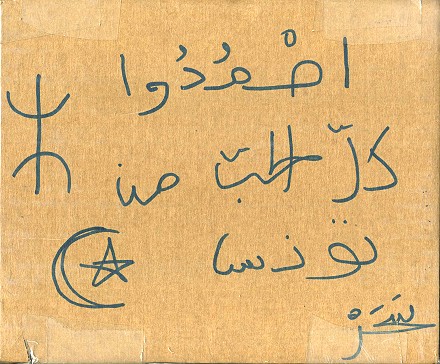 اصْمُدُوا
كلّ الحبّ من
تونس